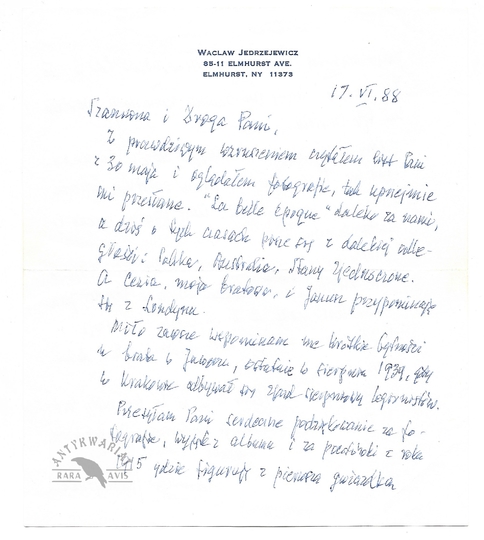 WACLAW JEDRZEJEWICZ
85-11 ELMHURST AVE.
ELMHURST, NY 11373
17.VI.88
Szanowna i Droga Pani,
Z prawdziwym wzruszeniem czytałem list Pani
z 30 maja i oglądałem fotografie, tak uprzejmie
mi przesłane. "La belle époque" daleko za nami,
a dziś o tych czasach pisze się z dalekiej odle-
głości: Polska, Australia, Stany Zjednoczone.
A Cenia, moja bratowa, i Janusz przypominają
się z Londynu.
Miło zawsze wspominam me krótkie bytności
u brata w, ostatnio w sierpniu 1939, gdy
w Krakowie odbywał się zjazd sierpniowy legionistów.
Przesyłam Pani serdeczne podziękowanie za fo-
tografie, wyjęte z albumu i za pocztówki z roku
1915 gdzie figuruję z pierwszą gwiazdką
ANTYKWARIAT
RARA AVIS